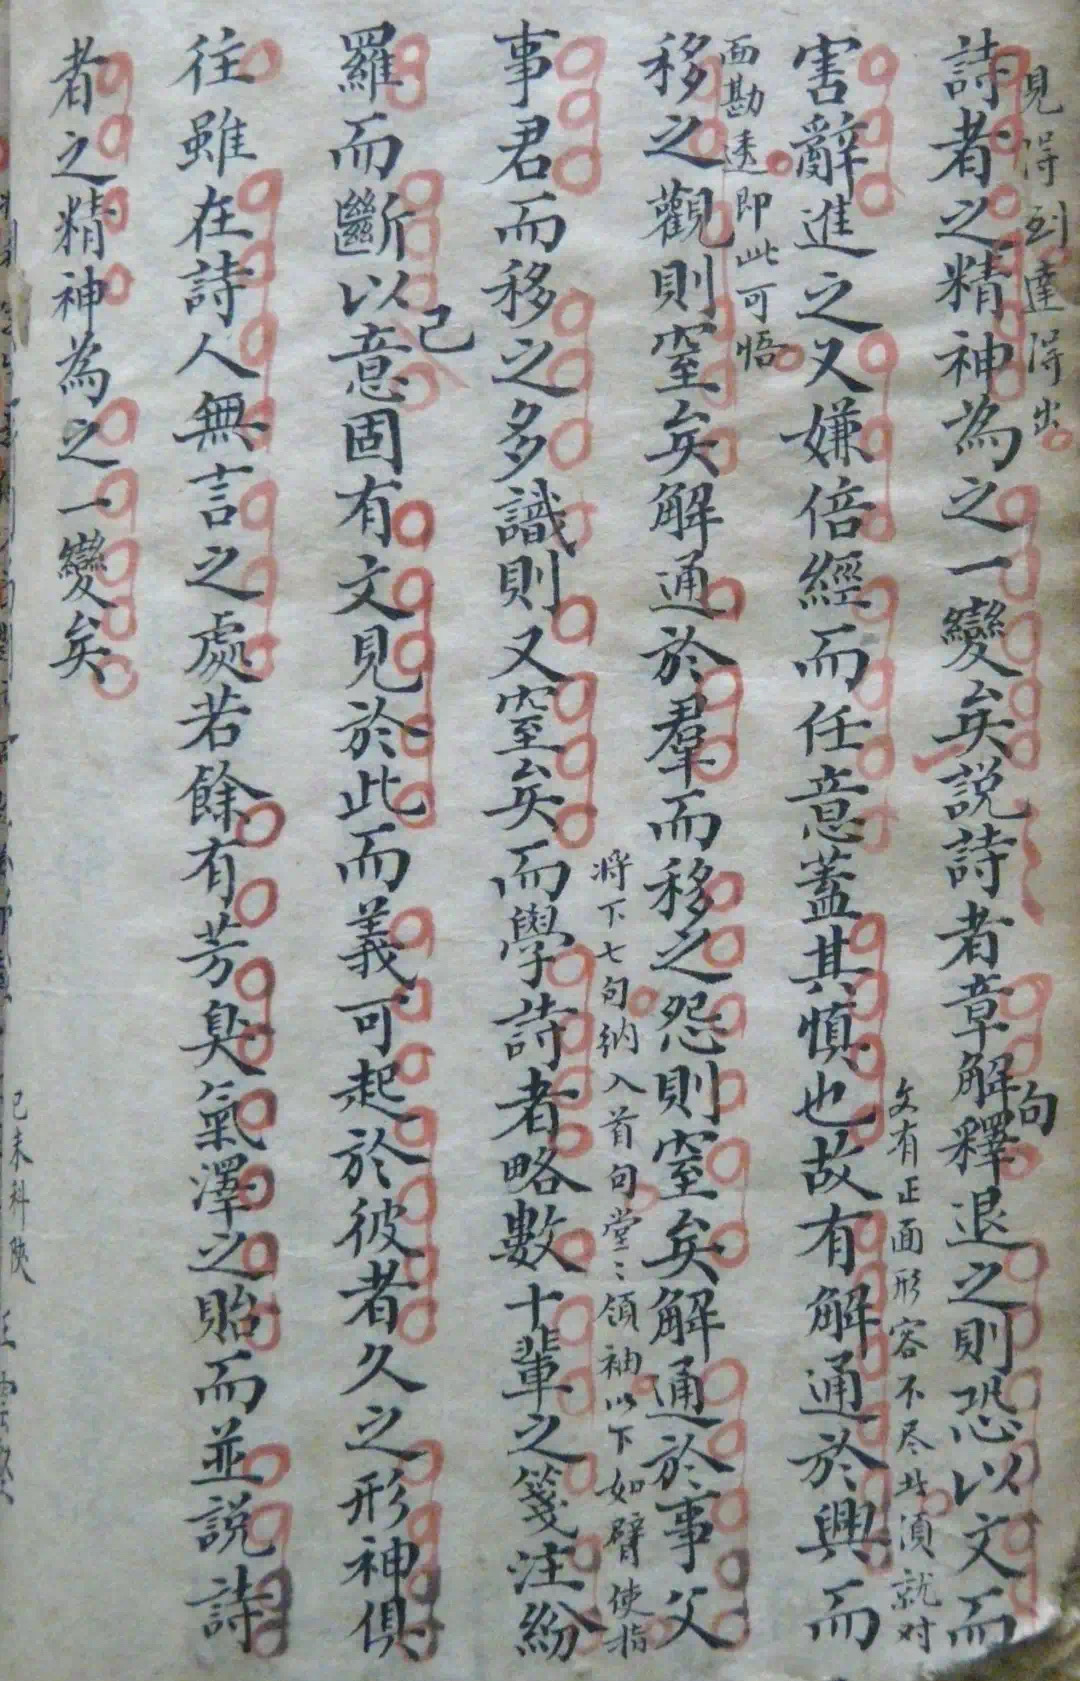 見得到達得出
詩者之精神為之一變矣説詩者章解句釋退之則恐以文而
文有正面形容不尽者須就对
害辭進之又嫌倍經而任意蓋其慎也故有解通於興而
面勘透即此可悟
移之觀則窒矣解通於羣而移之怨則窒矣解通於事父
將下七句納入首句堂〻領袖以下如臂使指
事君而移之多識則又窒矣而學詩者略數十輩之箋注紛
羅而斷以己意固有文見於此而義可起於彼者久之形神俱
往雖在詩人無言之處若餘有芳臭氣澤之貽而並説詩
者之精神為之一變矣
己未科陝